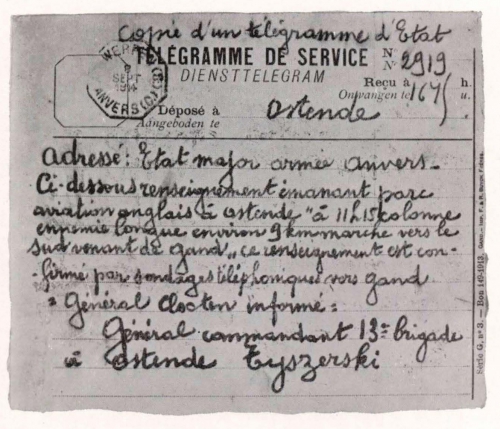 Copie d'un télégramme d'Etat
TÉLÉGRAMME DE SERVICE N° 2919
DIENSTTELEGRAM N°
SEPT
1914
ANVERS (C.)
Reçu à 167/ h.
Ontvangen te u.
Déposé à
Aangeboden te
Ostende
Adressé: Etat major armée anvers-
Ci-dessous renseignement émanant parc
aviation anglais à ostende "à 11h15 colonne
ennemie longue environ 9km marche vers le
sud venant de gand,, ce renseignement est con-
-firmé par sondages téléphoniques vers gand
"Général Clooten informé:
Général commandant 13e brigade
à Ostende Tyszerski
Série G, n° 3. — Bon 149-1913.